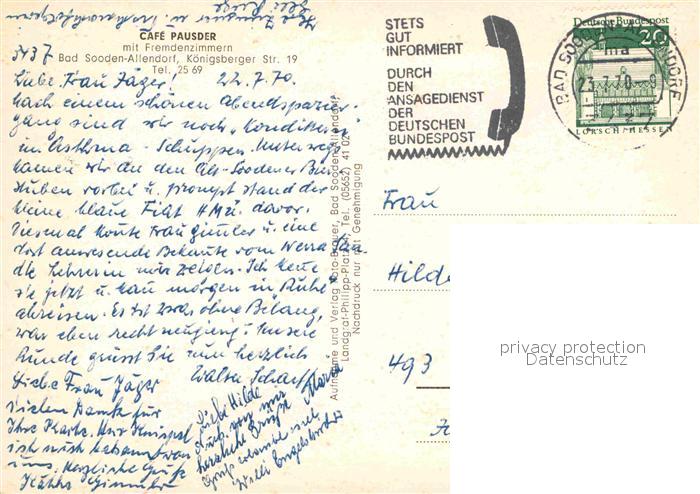 CAFÉ PAUSDER
mit Fremdenzimmern
Bad Sooden-Allendorf, Königsberger Str. 19
Tel. 25 69
3437
Liebe Frau Jäger! 22.7.70.
Nach einem schönen Abendspazier-
gang sind wir noch
im Asthma-Schuppen. Unterwegs
kamen wir an den Alt-Soodener
Stuben vorbei u. prompt stand der
kleine blaue Fiat HMÜ. davor.
Diesmal konte Frau Gimler u. eine
dort anwesende Bekante vom Werra
die Lehrerin mir zeigen. Ich
sie jetzt u. kan morgen in Ruhe
abreisen. Es ist zwar ohne Belang,
war eben recht neugierig! Unsere
Runde grüsst Sie nun herzlich
Walter
Liebe Frau Jäger
Vielen Dank für
Ihre Karte. Herr
ist auch bekannt von
uns. Herzliche Grüße
Käthe Gimmler
Liebe Hilde
Auch von mir
herzliche Grüße Maria
Willi Engelstädter
Aufnahme und Verlag Foto-Brauer, Bad Sooden-Allendorf
Landgraf-Philipp-Platz 4, Tel. (05652) 41 02
Nachdruck nur mit Genehmigung
STETS
GUT
INFORMIERT
DURCH
DEN
ANSAGEDIENST
DER
DEUTSCHEN
BUNDESPOST
BAD SOODEN-ALLENDORF
ma
23.7.70-9
Deutsche Bundespost
20
LORSCH/HESSEN
Frau
Hilde
493
privacy protection
Datenschutz